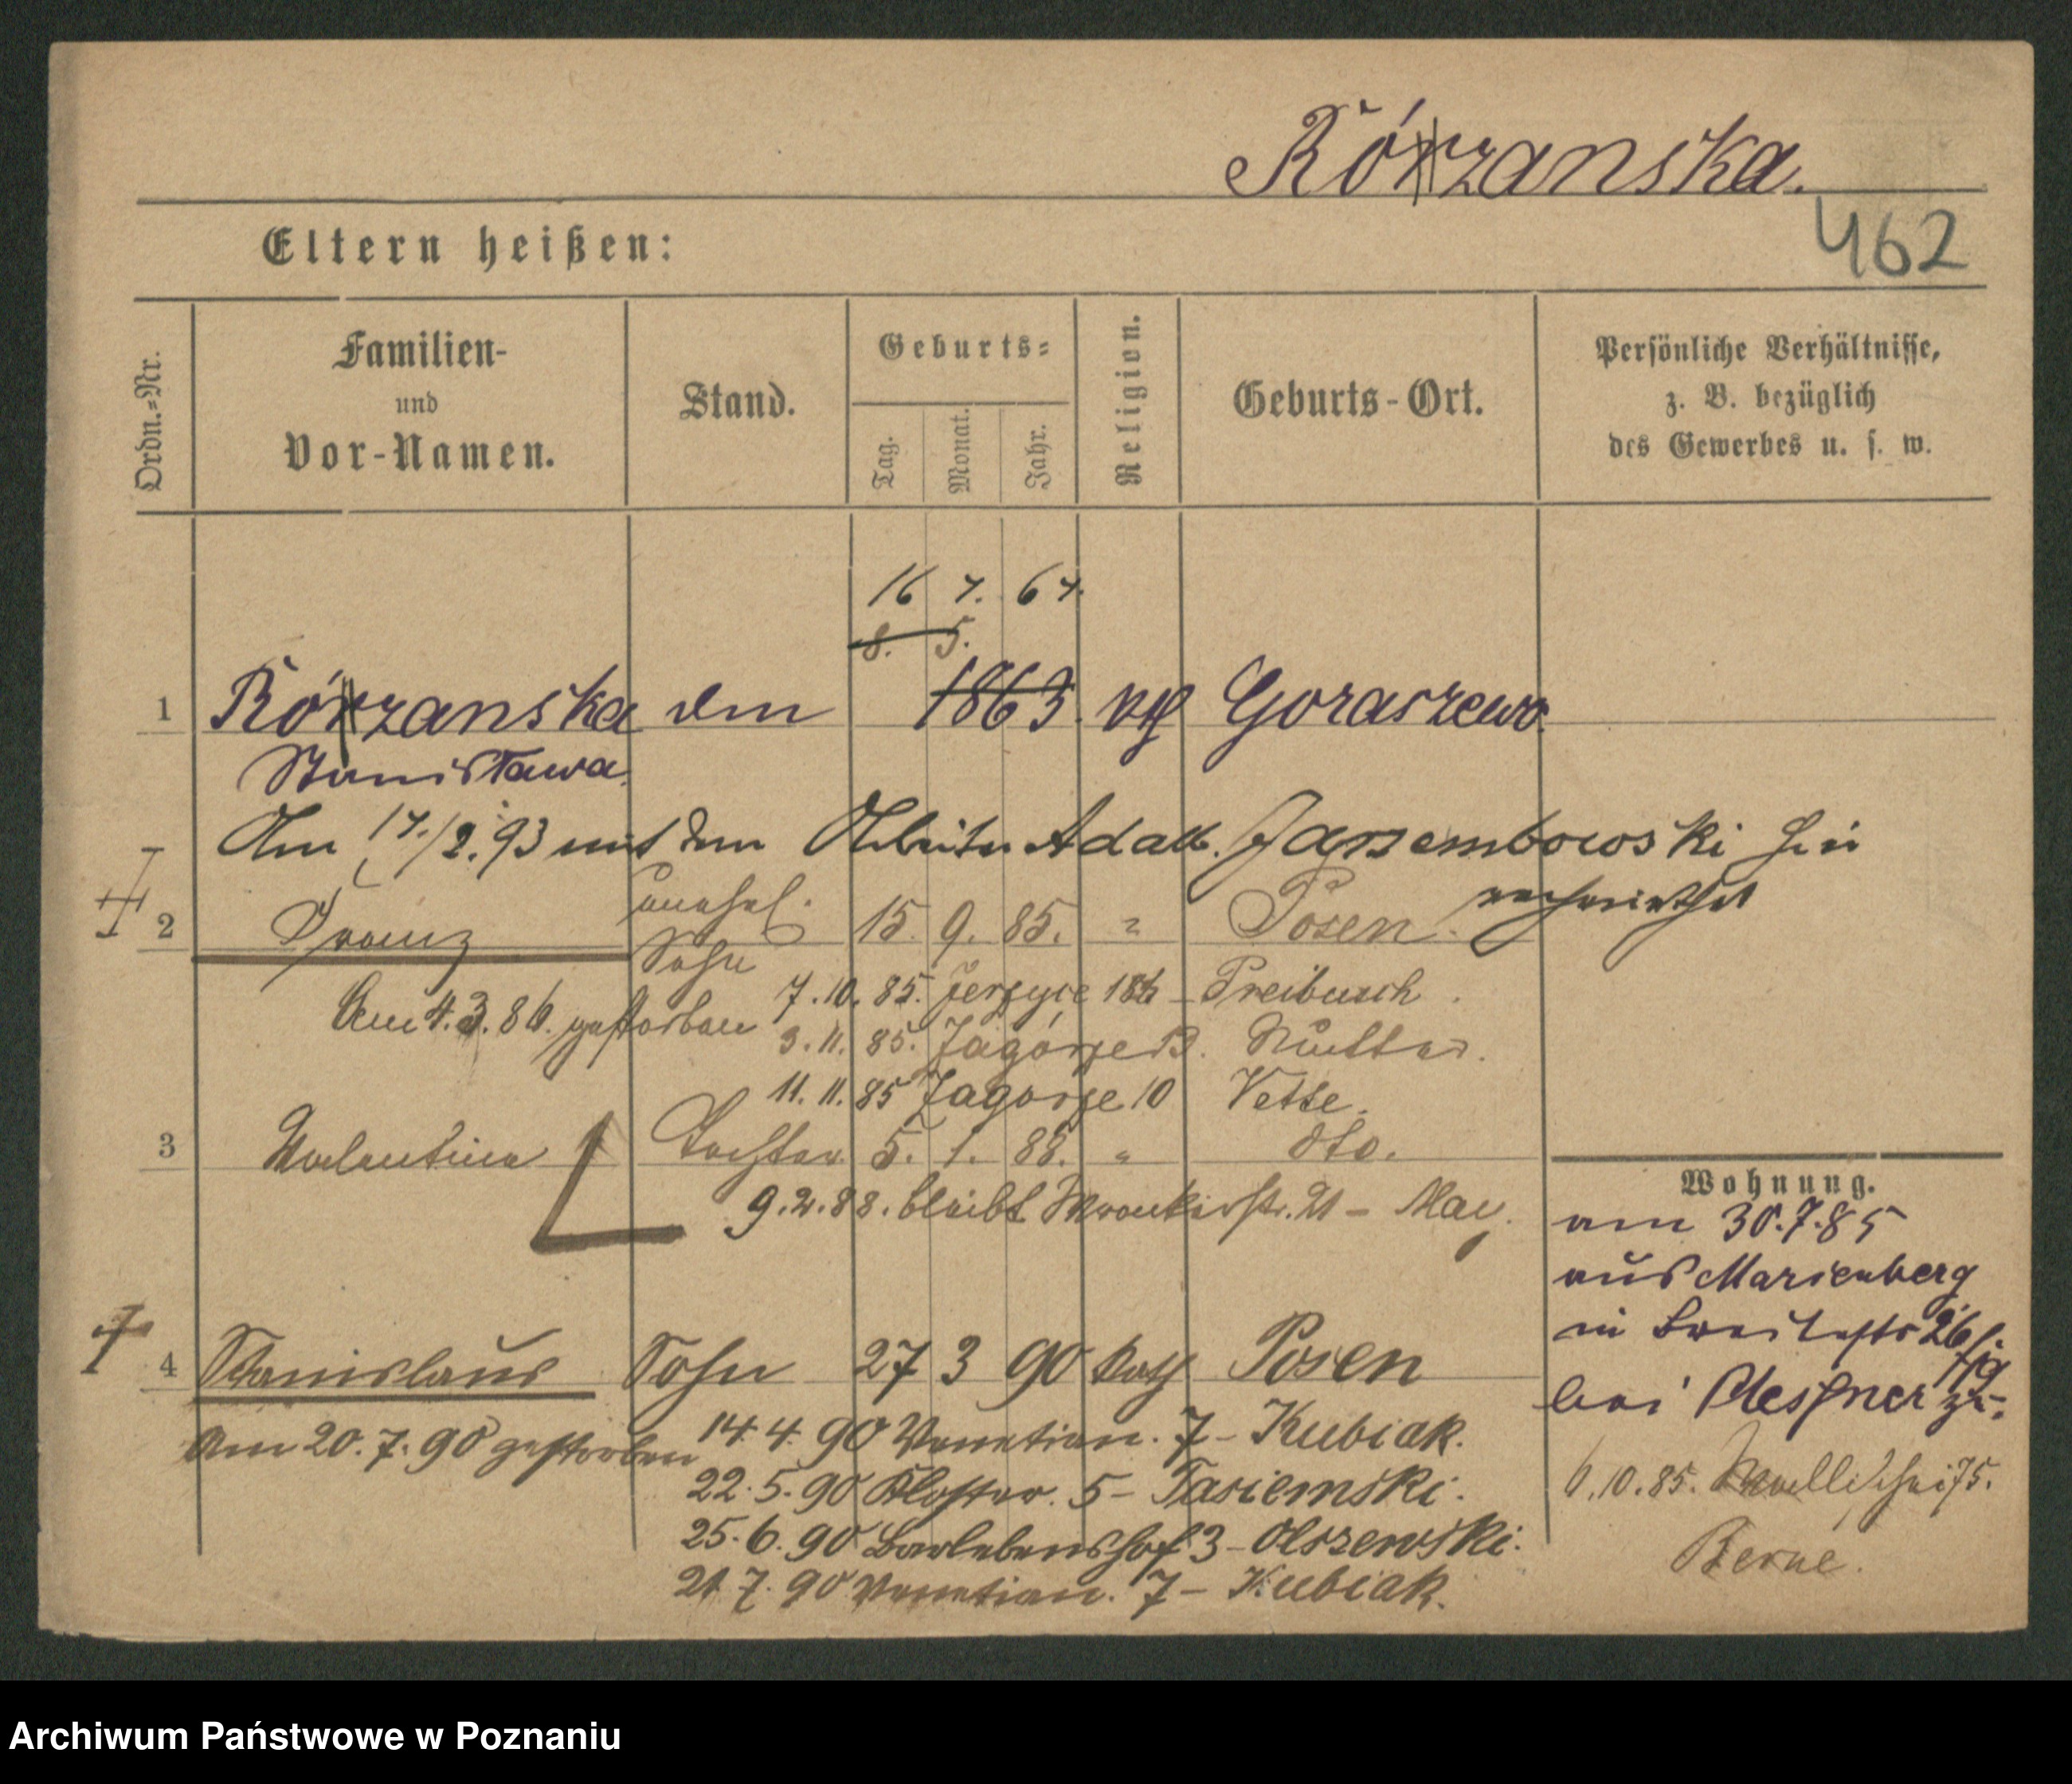 Rózanska.
462
Eltern heißen:
Ordn.=Nr.
Familien- und Vor-Namen.
Stand.
Geburts=
Tag.
Monat.
Jahr.
Religion.
Geburts-Ort.
Persönliche Verhältnisse,
z. B. bezüglich
des Gewerbes u. s. w.
16 7. 67.
8. 5.
1 Rózanska 1863. kth Goraszewo.
Stanisława.
Am 17./2. 93 mit dem Arbeiter Adalb. Jarzembowski hier
verheirathet
2 Franz unehel. Sohn 15. 9. 85. " Posen.
7. 10. 85. Jerzyce 186 - Preibusch.
Am 4. 3. 86. gestorben
3. 11. 85. Zagórze 13. Mutter.
11. 11. 85 Zagórze 10 Vette.
3 Valentina Tochter 5. 1. 88. " dto.
9. 2. 88. bleibt Wronkerstr. 21 - May.
Wohnung.
am 30. 7. 85
aus Marienberg
in Breitestr 26
bei Plessner zu.
6. 10. 85. Wallischei 75.
Berne.
4 Stanislaus Sohn 27 3 90 kath Posen
Am 20. 7. 90 gestorben
14. 4. 90 Venetian. 7 - Kubiak.
22. 5. 90 Kloster. 5 - Tasiemski.
25. 6. 90 Barlebenshof 3 - Olszewski.
21. 7. 90 Venetian. 7 - Kubiak.
Archiwum Państwowe w Poznaniu